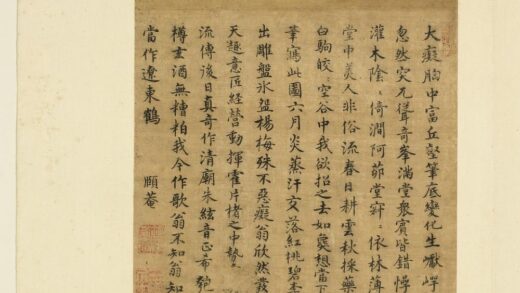 大癡胸中富丘壑筆底變化生巘崿
忽然突兀聳奇峯滿堂衆賓皆錯愕
灌木陰〻倚澗阿茆堂寂〻依林薄
堂中美人非俗流春日耕雲秋採藥
白駒皎〻空谷中我欲招之去如想當下
筆寫此圖六月炎蒸汗交落紅桃碧李
出雕盤氷盆楊梅殊不惡癡翁欣然發
天趣意匠經營動揮霍片楮之中勢
流傳後日真奇作清廟朱絃音正希匏
樽玄酒無糟粕我今作歌翁不知翁知
當作遼東鶴 頤菴